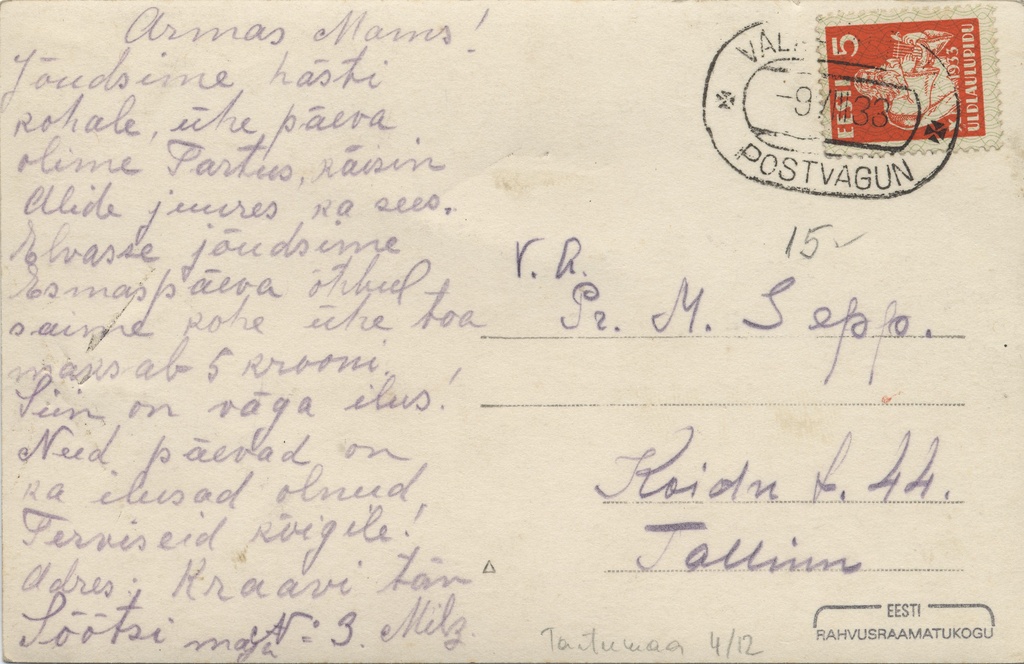 Armas Mams!
Jõudsime hästi
kohale, ühe päeva
olime Tartus, käisin
Alide juures ka sees.
Elvasse jõudsime
Esmaspäeva õhtul
saime kohe ühe toa
maksab 5 krooni.
Siin on väga ilus!
Need päevad on
ka ilusad olnud.
Terviseid kõigile!
Adres: Kraavi tän
Söötsi maja № 3. Milz.
POSTVAGUN
33
EESTI 5
1933
ÜLDLAULUPIDU
15-
V. A.
Pr. M. Sepp.
Koidu t. 44.
Tallinn
Tartumaa 4/12
EESTI
RAHVUSRAAMATUKOGU